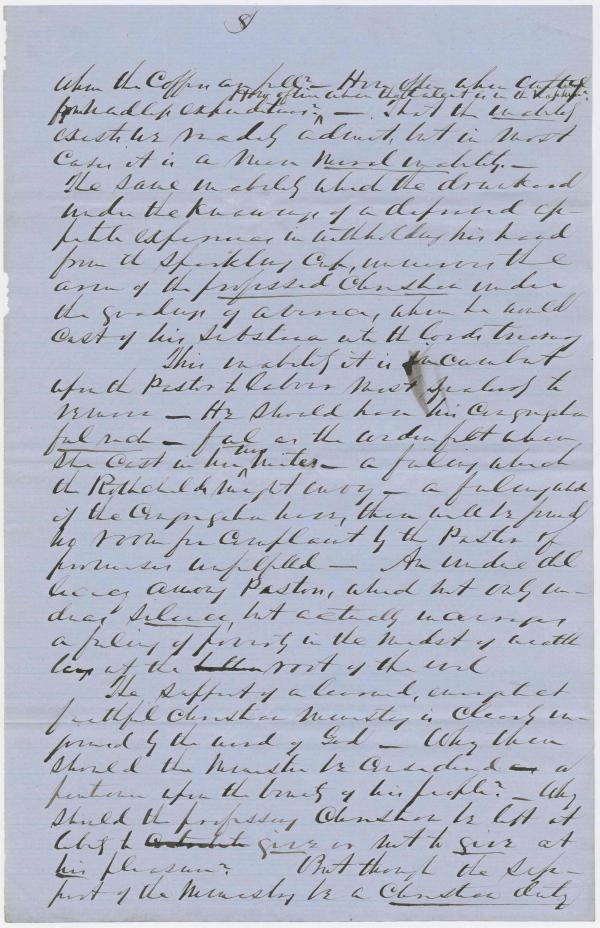 8
when the Coffers are full? — How often when
How often when the talent is in the napkin?
for needless expenditures? — That the inability
exists we readily admit, but in most
Cases it is a mere moral inability. —
The same inability which the drunkard
under the knawings of a depraved ap-
petite experiences in withholding his hand
from the sparkling Cup, unnerves the
arm of the professed Christian under
the of avarice, when he would
Cast of his substance into the Lords treasury
This inability it is incumbent
upon the Pastor to labour most zealously to
remove — He should have his Congregation
feel rich — feel as the widow felt when
She Cast in her two mites — a feeling which
the Rothchilds might envy — a feeling which
if the Congregation have, there will be found
no room for Complaint by the Pastor of
promises unfulfilled — An undue del-
icacy among Pastors, which not only in-
duces silence, but actually encourages
a feeling of poverty in the midst of wealth
lays at the root of the evil
The support of a learned, competent
faithful Christian Ministry is clearly en-
joined by the word of God — Why then
should the Minister be Considered a
pensioner upon the bounty of his people? — Why
should the professing Christian be left at
liberty to give or not to give at
his pleasure? But though the sup-
port of the Ministry be a Christian duty